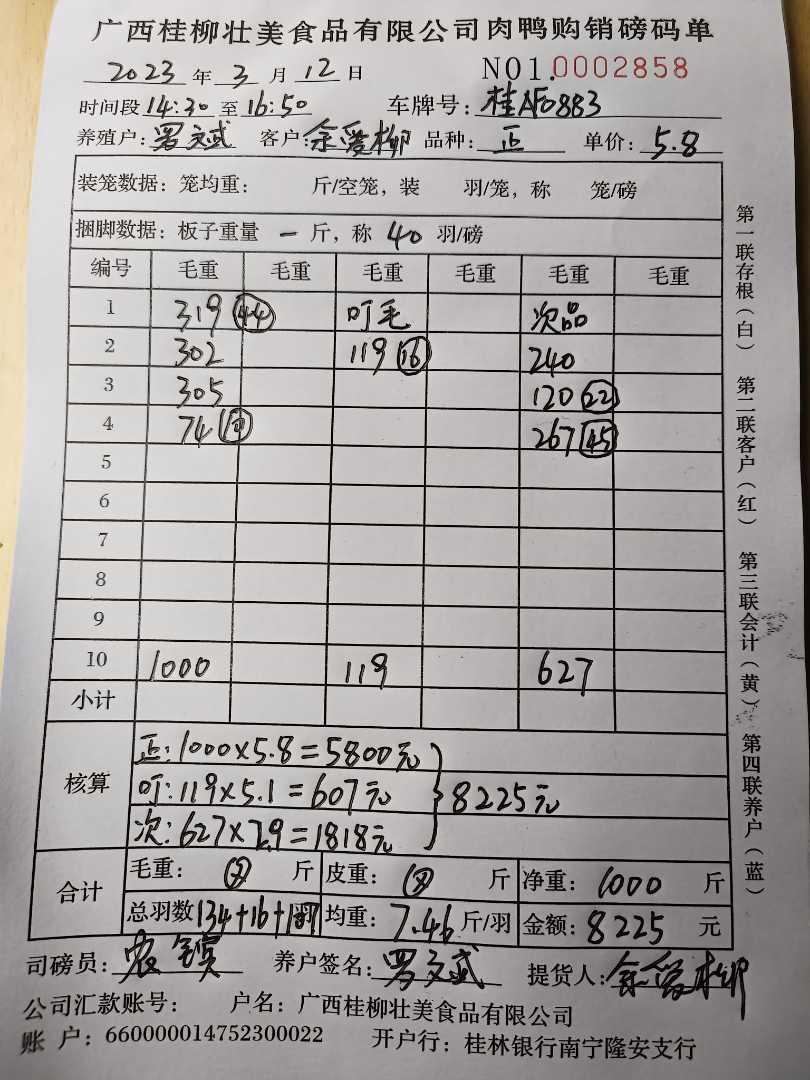 广西桂柳壮美食品有限公司肉鸭购销磅码单
2023年3月12日 NO1.0002858
时间段14:30至16:50 车牌号:桂AF0883
养殖户:罗文武 客户:余爱柳 品种:正 单价:5.8
装笼数据:笼均重: 斤/空笼,装 羽/笼,称 笼/磅
捆脚数据:板子重量 一 斤,称 40 羽/磅
编号 毛重 毛重 毛重 毛重 毛重 毛重
1 319 44 叮毛 次品
2 302 119 16 240
3 305 120 22
4 74 267 45
5
6
7
8
9
10 1000 119 627
小计
核算
正:1000×5.8=5800元
叮:119×5.1=607元
8225元
次:627×2.9=1818元
合计
毛重: 斤 皮重: 斤 净重:1000 斤
总羽数134+16+ 均重:7.46斤/羽 金额:8225元
司磅员: 养户签名:罗文武 提货人:余爱柳
公司汇款账号: 户名:广西桂柳壮美食品有限公司
账 户:660000014752300022 开户行:桂林银行南宁隆安支行
第一联存根(白) 第二联客户(红) 第三联会计(黄) 第四联养户(蓝)